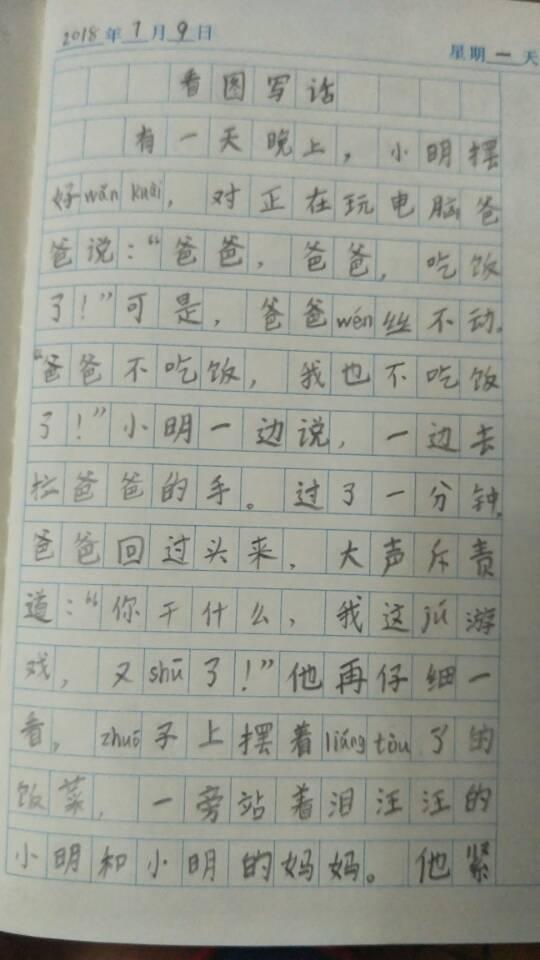 2018年7月9日
星期一 天
看图写话
有一天晚上，小明摆
好wǎn kuài，对正在玩电脑爸
爸说：“爸爸，爸爸，吃饭
了！”可是，爸爸wén丝不动。
“爸爸不吃饭，我也不吃饭
了！”小明一边说，一边去
拉爸爸的手。过了一分钟，
爸爸回过头来，大声斥责
道：“你干什么，我这jú游
戏，又shū了！”他再仔细一
看，zhuō子上摆着liáng tòu了的
饭菜，一旁站着泪汪汪的
小明和小明的妈妈。他紧